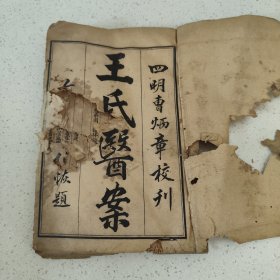 四明曹炳章校刊
王氏醫案
題